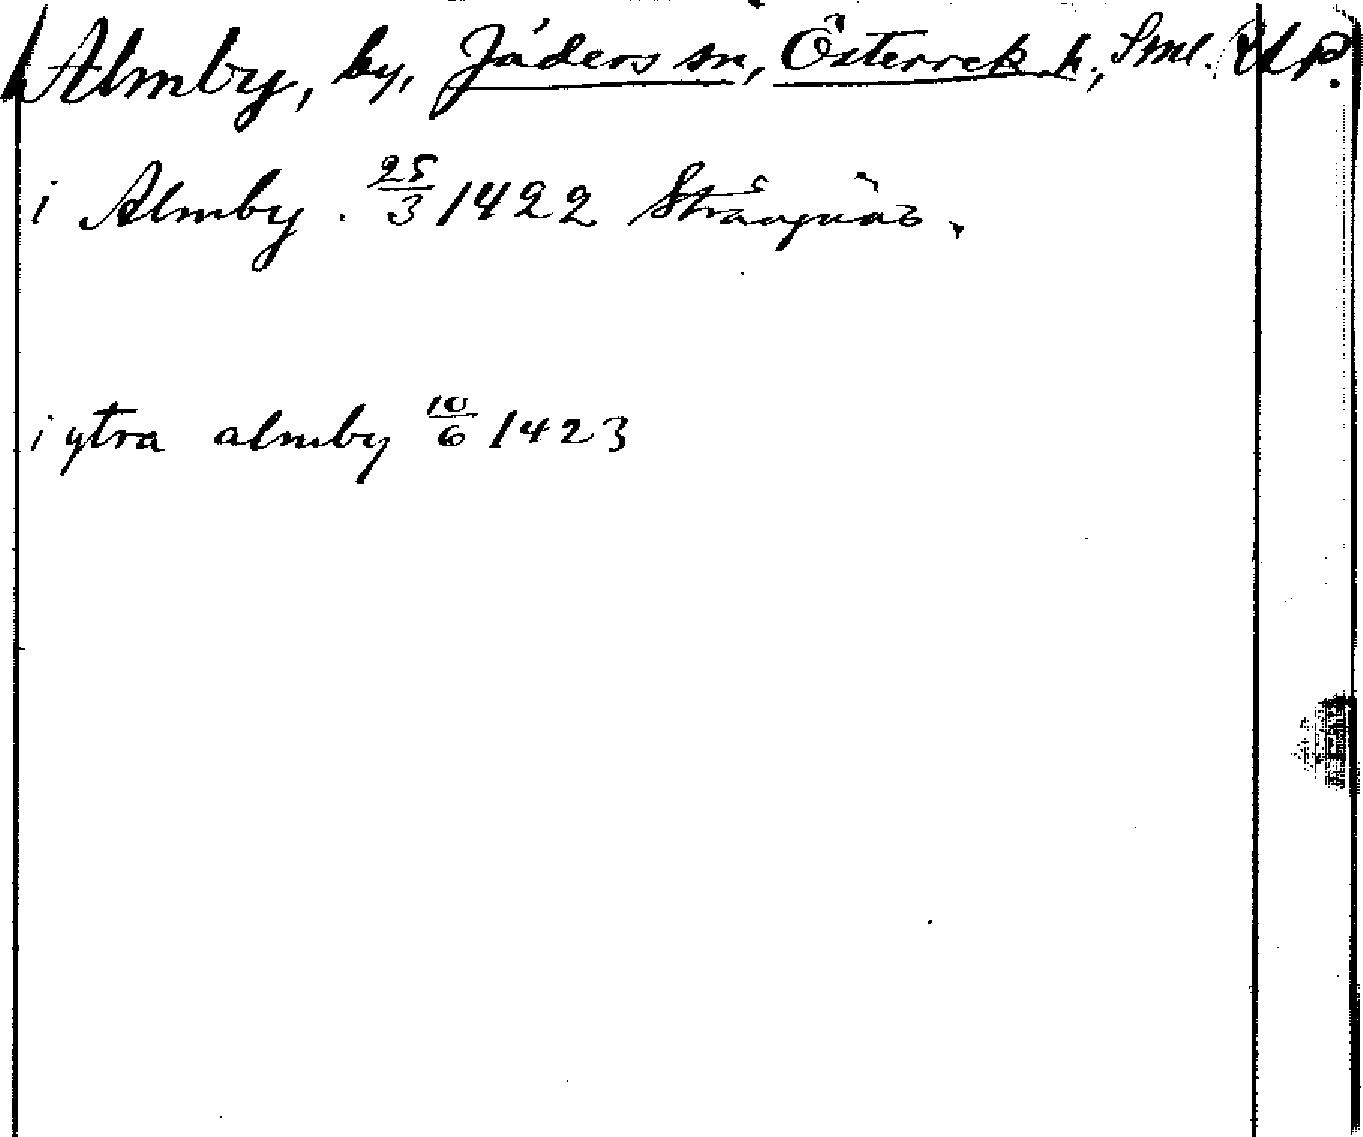 Almby, by, Jäders sn, Österrek. h., Sml. Up.
i Almby. 25/3 1422 Strängnäs.
i ytra almby 10/6 1423